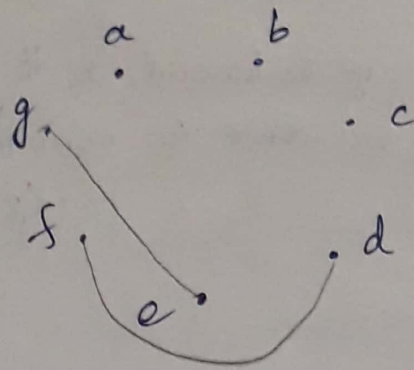 a
b
g
c
f
d
e